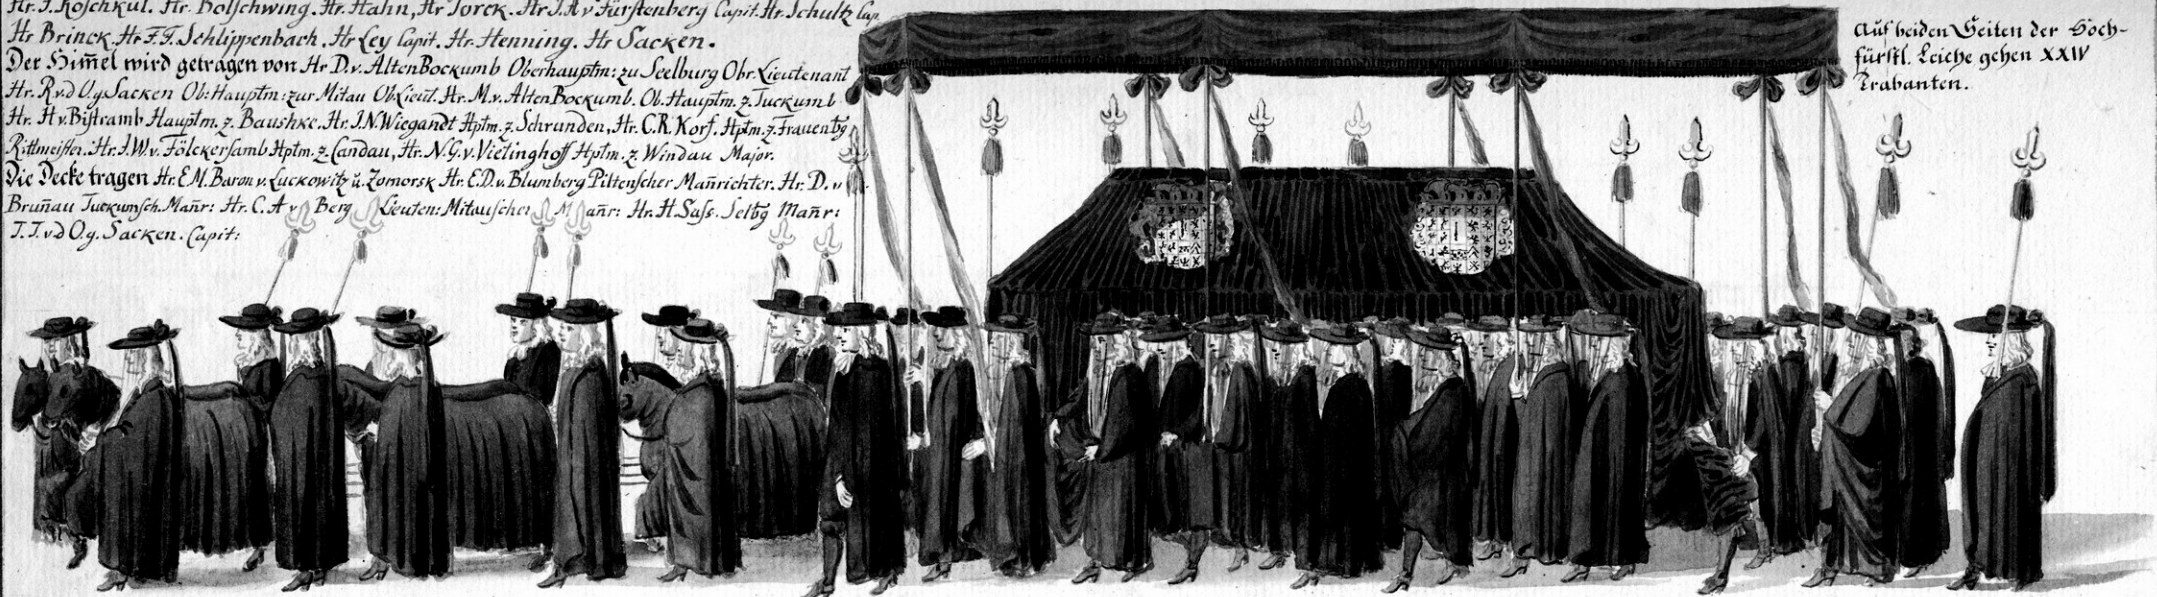 Hr. J. Koschkul. Hr. Bolschwing. Hr. Hahn, Hr Torck. Hr. J. A v Fürstenberg Capit. Hr. Schultz Cap.
Hr Brinck. Hr F. F. Schlippenbach. Hr Ley Capit. Hr. Henning. Hr Sacken.
Der Him̄el wird getragen von Hr D. v. AltenBockumb Oberhauptm: zu Seelburg Obr. Lieutenant
Hr. R v. d O. g. Sacken Ob: Hauptm: zur Mitau Ob. Lieut. Hr. M. v. AltenBockumb. Ob. Hauptm. z. Tuckumb
Hr. H v. Bistramb Hauptm. z. Bauske. Hr. J. N. Wiegandt Hptm. z. Schrunden, Hr. C. R. Korf. Hptm. z. Frauenbg
Rittmeister. Hr. J. W. v. Fölckersamb Hptm. z. Candau, Hr. N. G. v. Vietinghoff Hptm. z. Windau Major.
Die Decke tragen Hr. E. M. Baron v. Luckowitz ü. Zomorsk Hr. E. D. v. Blumberg Piltenscher Man̄richter. Hr. D. v
Brun̄au Tuckumsch. Man̄r: Hr. C. A v Berg Lieuten: Mitauscher Man̄r: Hr. H. Sass. Selbg Man̄r:
J. J. v d O. g. Sacken. Capit:
Auf beiden Seiten der Hoch-
fürstl. Leiche gehen XXIV
Trabanten.